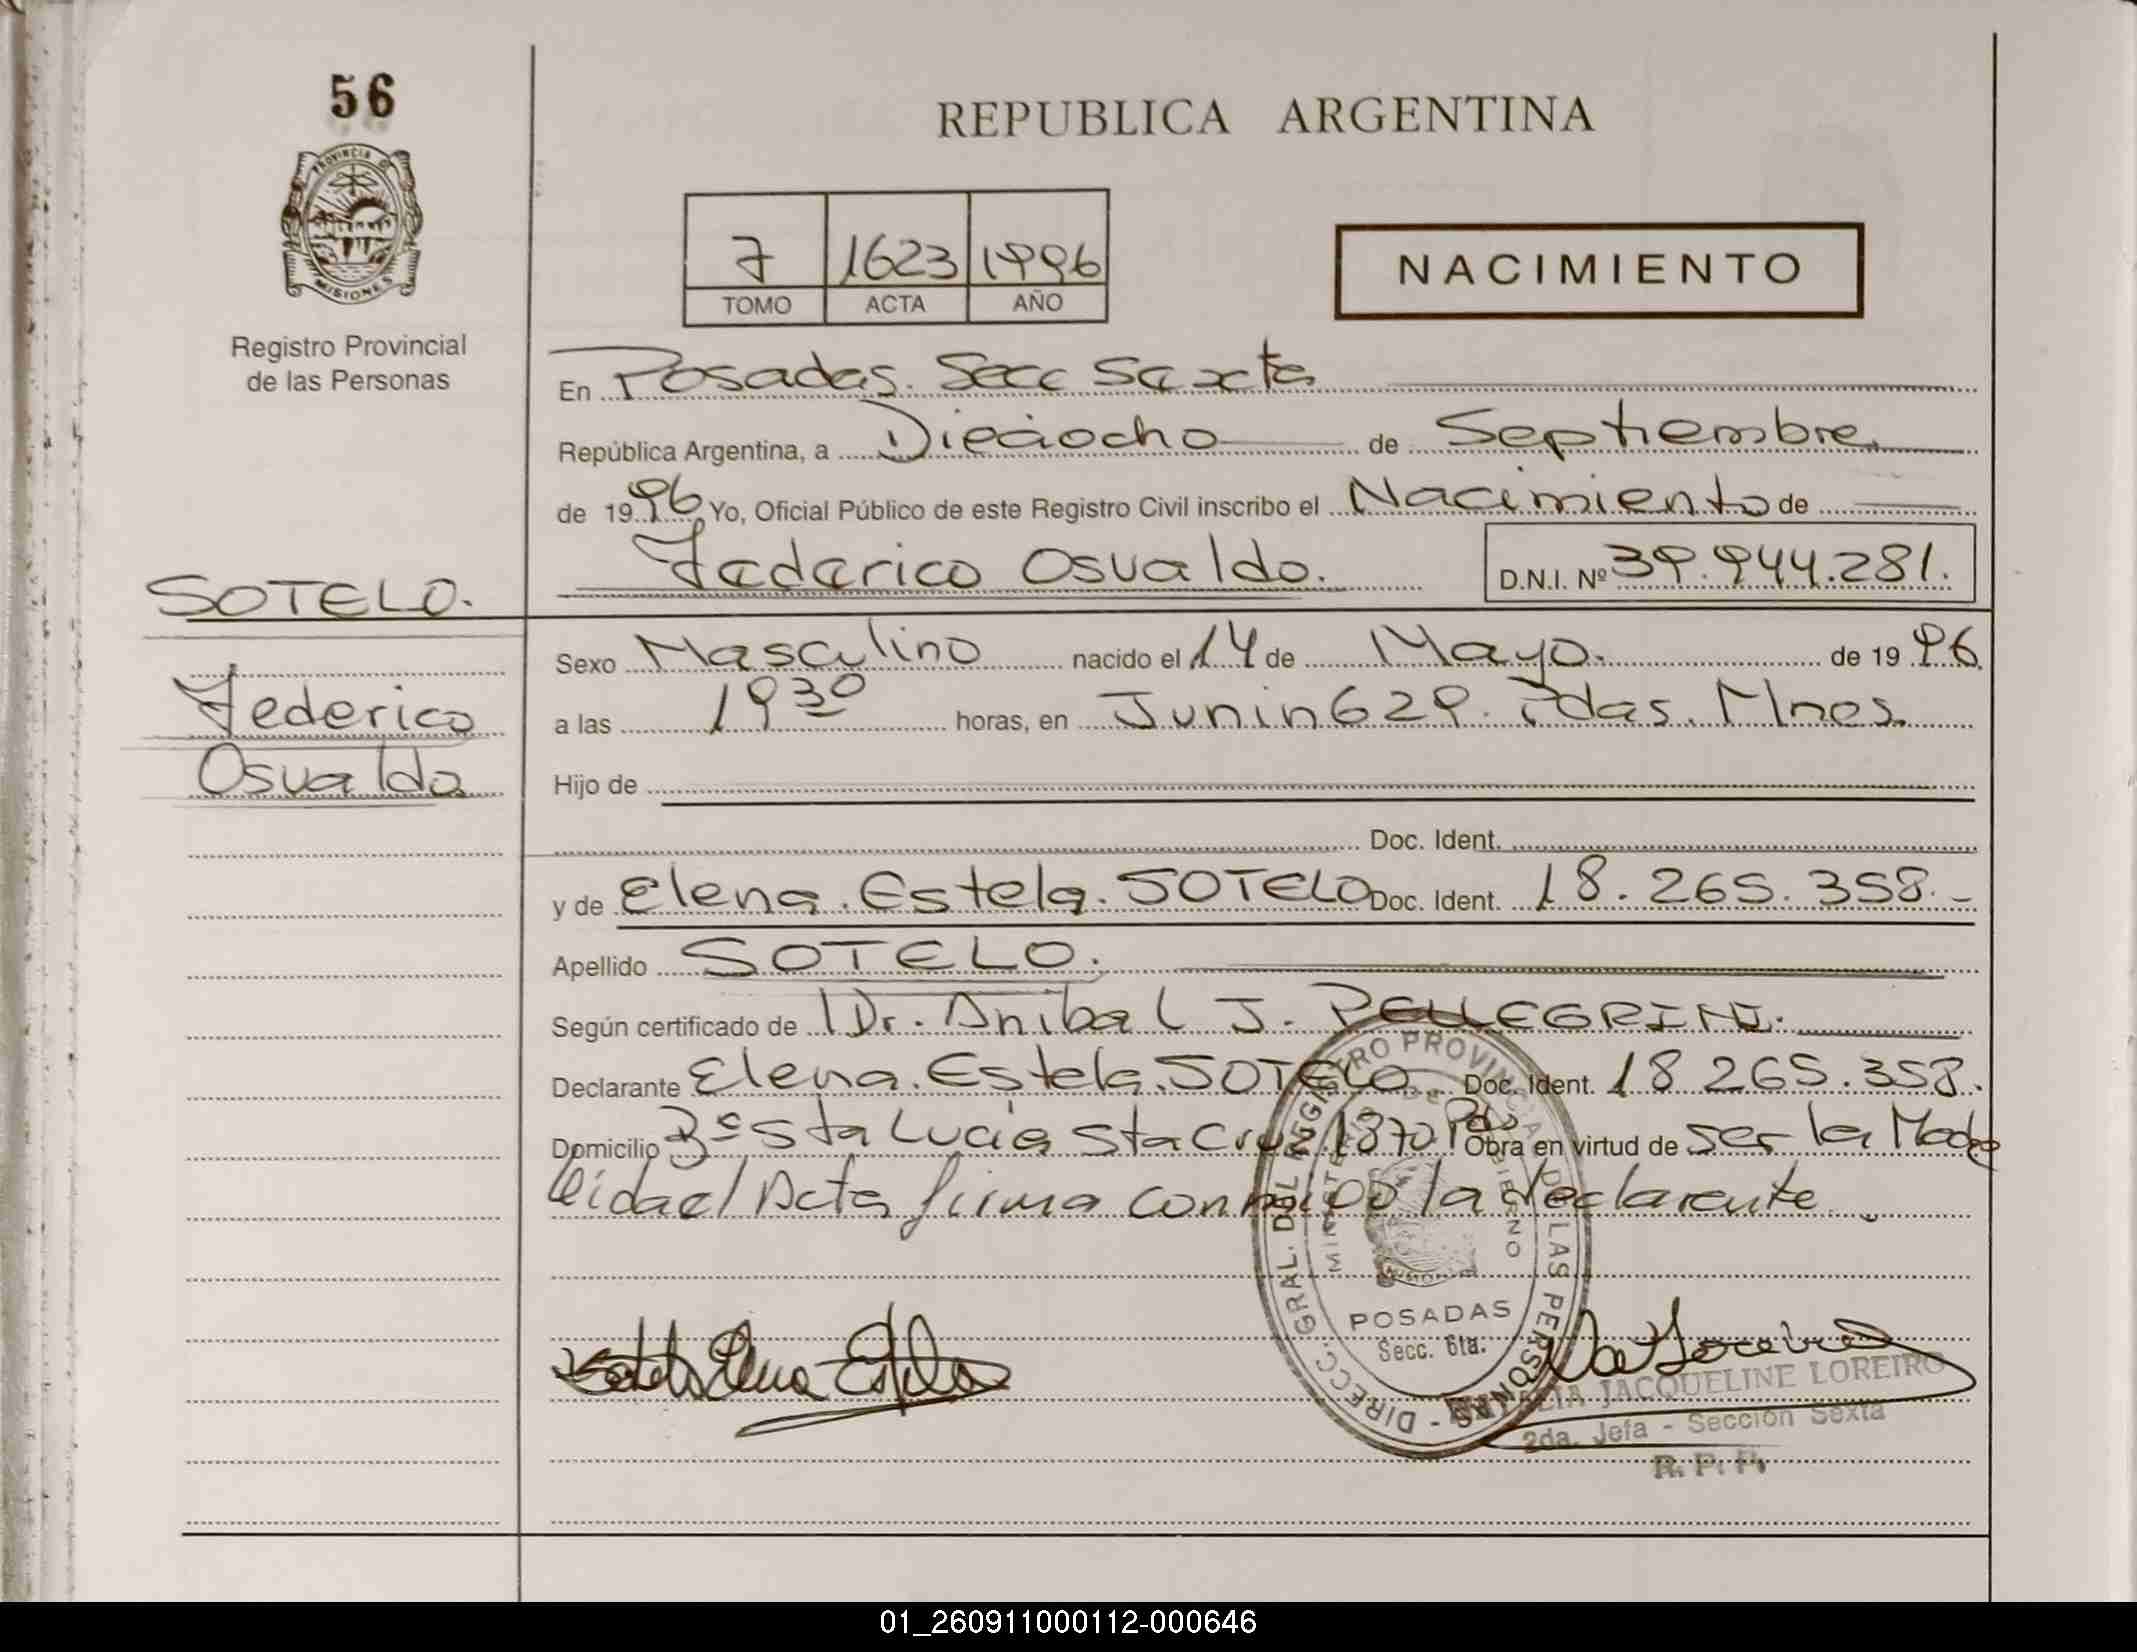 56
REPUBLICA ARGENTINA
PROVINCIA D
MISIONES
7 1623 1996
TOMO ACTA AÑO
NACIMIENTO
Registro Provincial
de las Personas
En Posadas. Secc Sexta
República Argentina, a Dieciocho de Septiembre
de 1996 Yo, Oficial Público de este Registro Civil inscribo el Nacimiento de
Federico Osvaldo. D.N.I. Nº 39.944.281.
SOTELO.
Federico
Osvaldo
Sexo Masculino nacido el 14 de Mayo. de 1996
a las 19 30 horas, en Junin 629. Pdas. Mnes.
Hijo de
Doc. Ident.
y de Elena. Estela. SOTELO Doc. Ident. 18.265.358.-
Apellido SOTELO.
Según certificado de Dr. Anibal J. PELLEGRINI.
Declarante Elena. Estela. SOTELO Doc. Ident. 18 265.358.
Domicilio Bº Sta Lucia Sta Cruz 1370 Pdas Obra en virtud de ser la Madre
leida el Acta firma conmigo la declarante.
Sotelo Elena Estela
DIRECC. GRAL. DEL REGISTRO PROVINCIAL DE LAS PERSONAS
POSADAS
Secc. 6ta.
JACQUELINE LOREIRO
2da. Jefa - Sección Sexta
R. P. P.
01_260911000112-000646